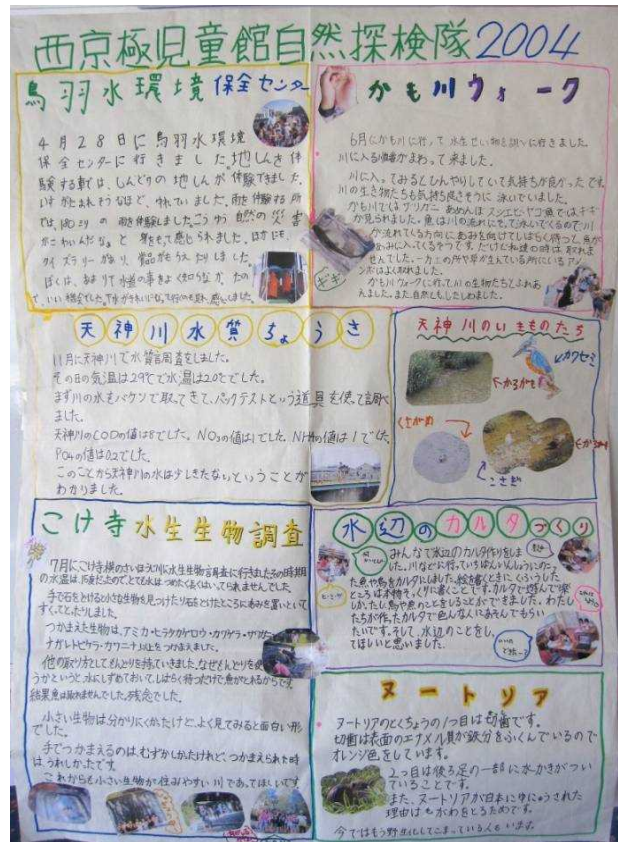 西京極児童館自然探検隊2004
鳥羽水環境保全センター
4月28日に鳥羽水環境
保全センターに行きました。地しん体
験する車では、しんどりの地しんが体験できました。
いすがたおれそうなほど、ゆれていました。雨を体験する所
では、 の雨を体験しました。こうゆう自然の災害
がこわいんだな。と身をもって感じられました。ほかにも、
クイズラリーがあり、賞品がもらえたりしました。
ぼくは、あまり下水道の事をよく知らなかったの
で、いい機会でした。
かも川ウォーク
6月にかも川に行って水生せい物を調べに行きました。
川に入る順番がまわって来ました。
川に入ってみるとひんやりしていて気持ちが良かったです。
川の生き物たちも気持ち良さそうに泳いでいました。
かも川ではザリガニ・あめんぼ・スジエビ・ヤゴ魚ではギギ
が見られました。魚は川の流れにそって泳いでくるので川
が流れている方向にあみを向けてしばらく待って魚が
あみに入ってくるそうです。だけど私達の時は取れま
せんでした。一方上の所や草が生えている所にいるアメ
ンボはよく取れました。
かも川ウォークに行って川の生物たちとふれあ
えました。また自然ともしたしめました。
ギギ
天神川水質ちょうさ
11月に天神川で水質調査をしました。
その日の気温は29℃で水温は20℃でした。
まず川の水をバケツで取ってきて、パックテストという道具を使って調べ
ました。
天神川のCODの値は8でした。NO₃の値は1でした。NH₄の値は1でした。
PO₄の値は0.2でした。
このことから天神川の水は少しきたないということが
わかりました。
天神川のいきものたち
カワセミ
かるがも
くさがめ
こさぎ
こけ寺水生生物調査
7月にこけ寺横のさいほうじ川に水生生物調査に行きました。その時期
の水温は、 だったのでとても水はつめたく長くはいってられませんでした。
手で石をどけると小さな生物を見つけたり石をどけたところにあみを置いといて
すくってとったりしました。
つかまえた生物は、アミカ・ヒラタカゲロウ・カワゲラ・サワガニ
ナガレトビケラ・カワニナ以上をつかまえました。
他の取り方としてもんどりを持っていきました。なぜもんどりを使
うかというと、水にしずめておいてしばらく待つだけで魚がとれるからです。
結果魚は取れませんでした。残念でした。
小さい生物は分かりにくかたけど、よく見てみると面白い形
でした。
手でつかまえるのは、むずかしかたけれど、つかまえられた時
は、うれしかたです。
これからも小さい生物が住みやすい川であってほしいです
水辺のカルタづくり
みんなで水辺のカルタ作りをしま
した。川などに行って、いちばんいんしょうにのこっ
た魚や鳥をカルタにしました。絵を書くときにくふうした
ところは本物そっくりに書くことです。カルタで遊んで楽
しかたし鳥や魚のことをしることができました。わたし
たちが作ったカルタで色んな人にあそんでもらい
たいです。そして、水辺のことをし、
てほしいと思いました。
ヌートリア
ヌートリアのとくちょうの1つ目は切歯です。
切歯は表面のエナメル質が鉄分をふくんでいるので
オレンジ色をしています。
2つ目は後ろ足の一部に水かきがつい
ていることです。
また、ヌートリアが日本にゆにゅうされた
理由は毛がわをとるためです。
今ではもう野生化してこまっている人もいます。